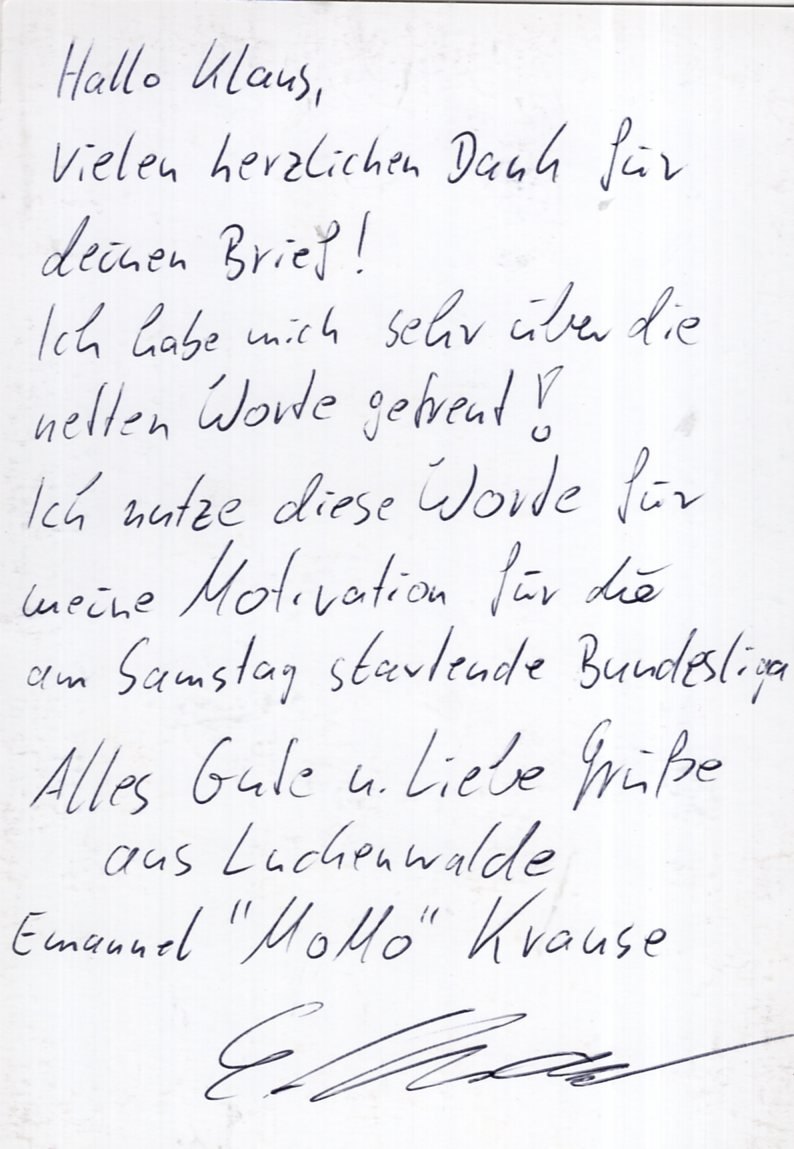 Hallo Klaus,
vielen herzlichen Dank für
deinen Brief!
Ich habe mich sehr über die
netten Worte gefreut!
Ich nutze diese Worte für
meine Motivation für die
am Samstag startende Bundesliga
Alles Gute u. Liebe Grüße
aus Luckenwalde
Emanuel "MoMo" Krause